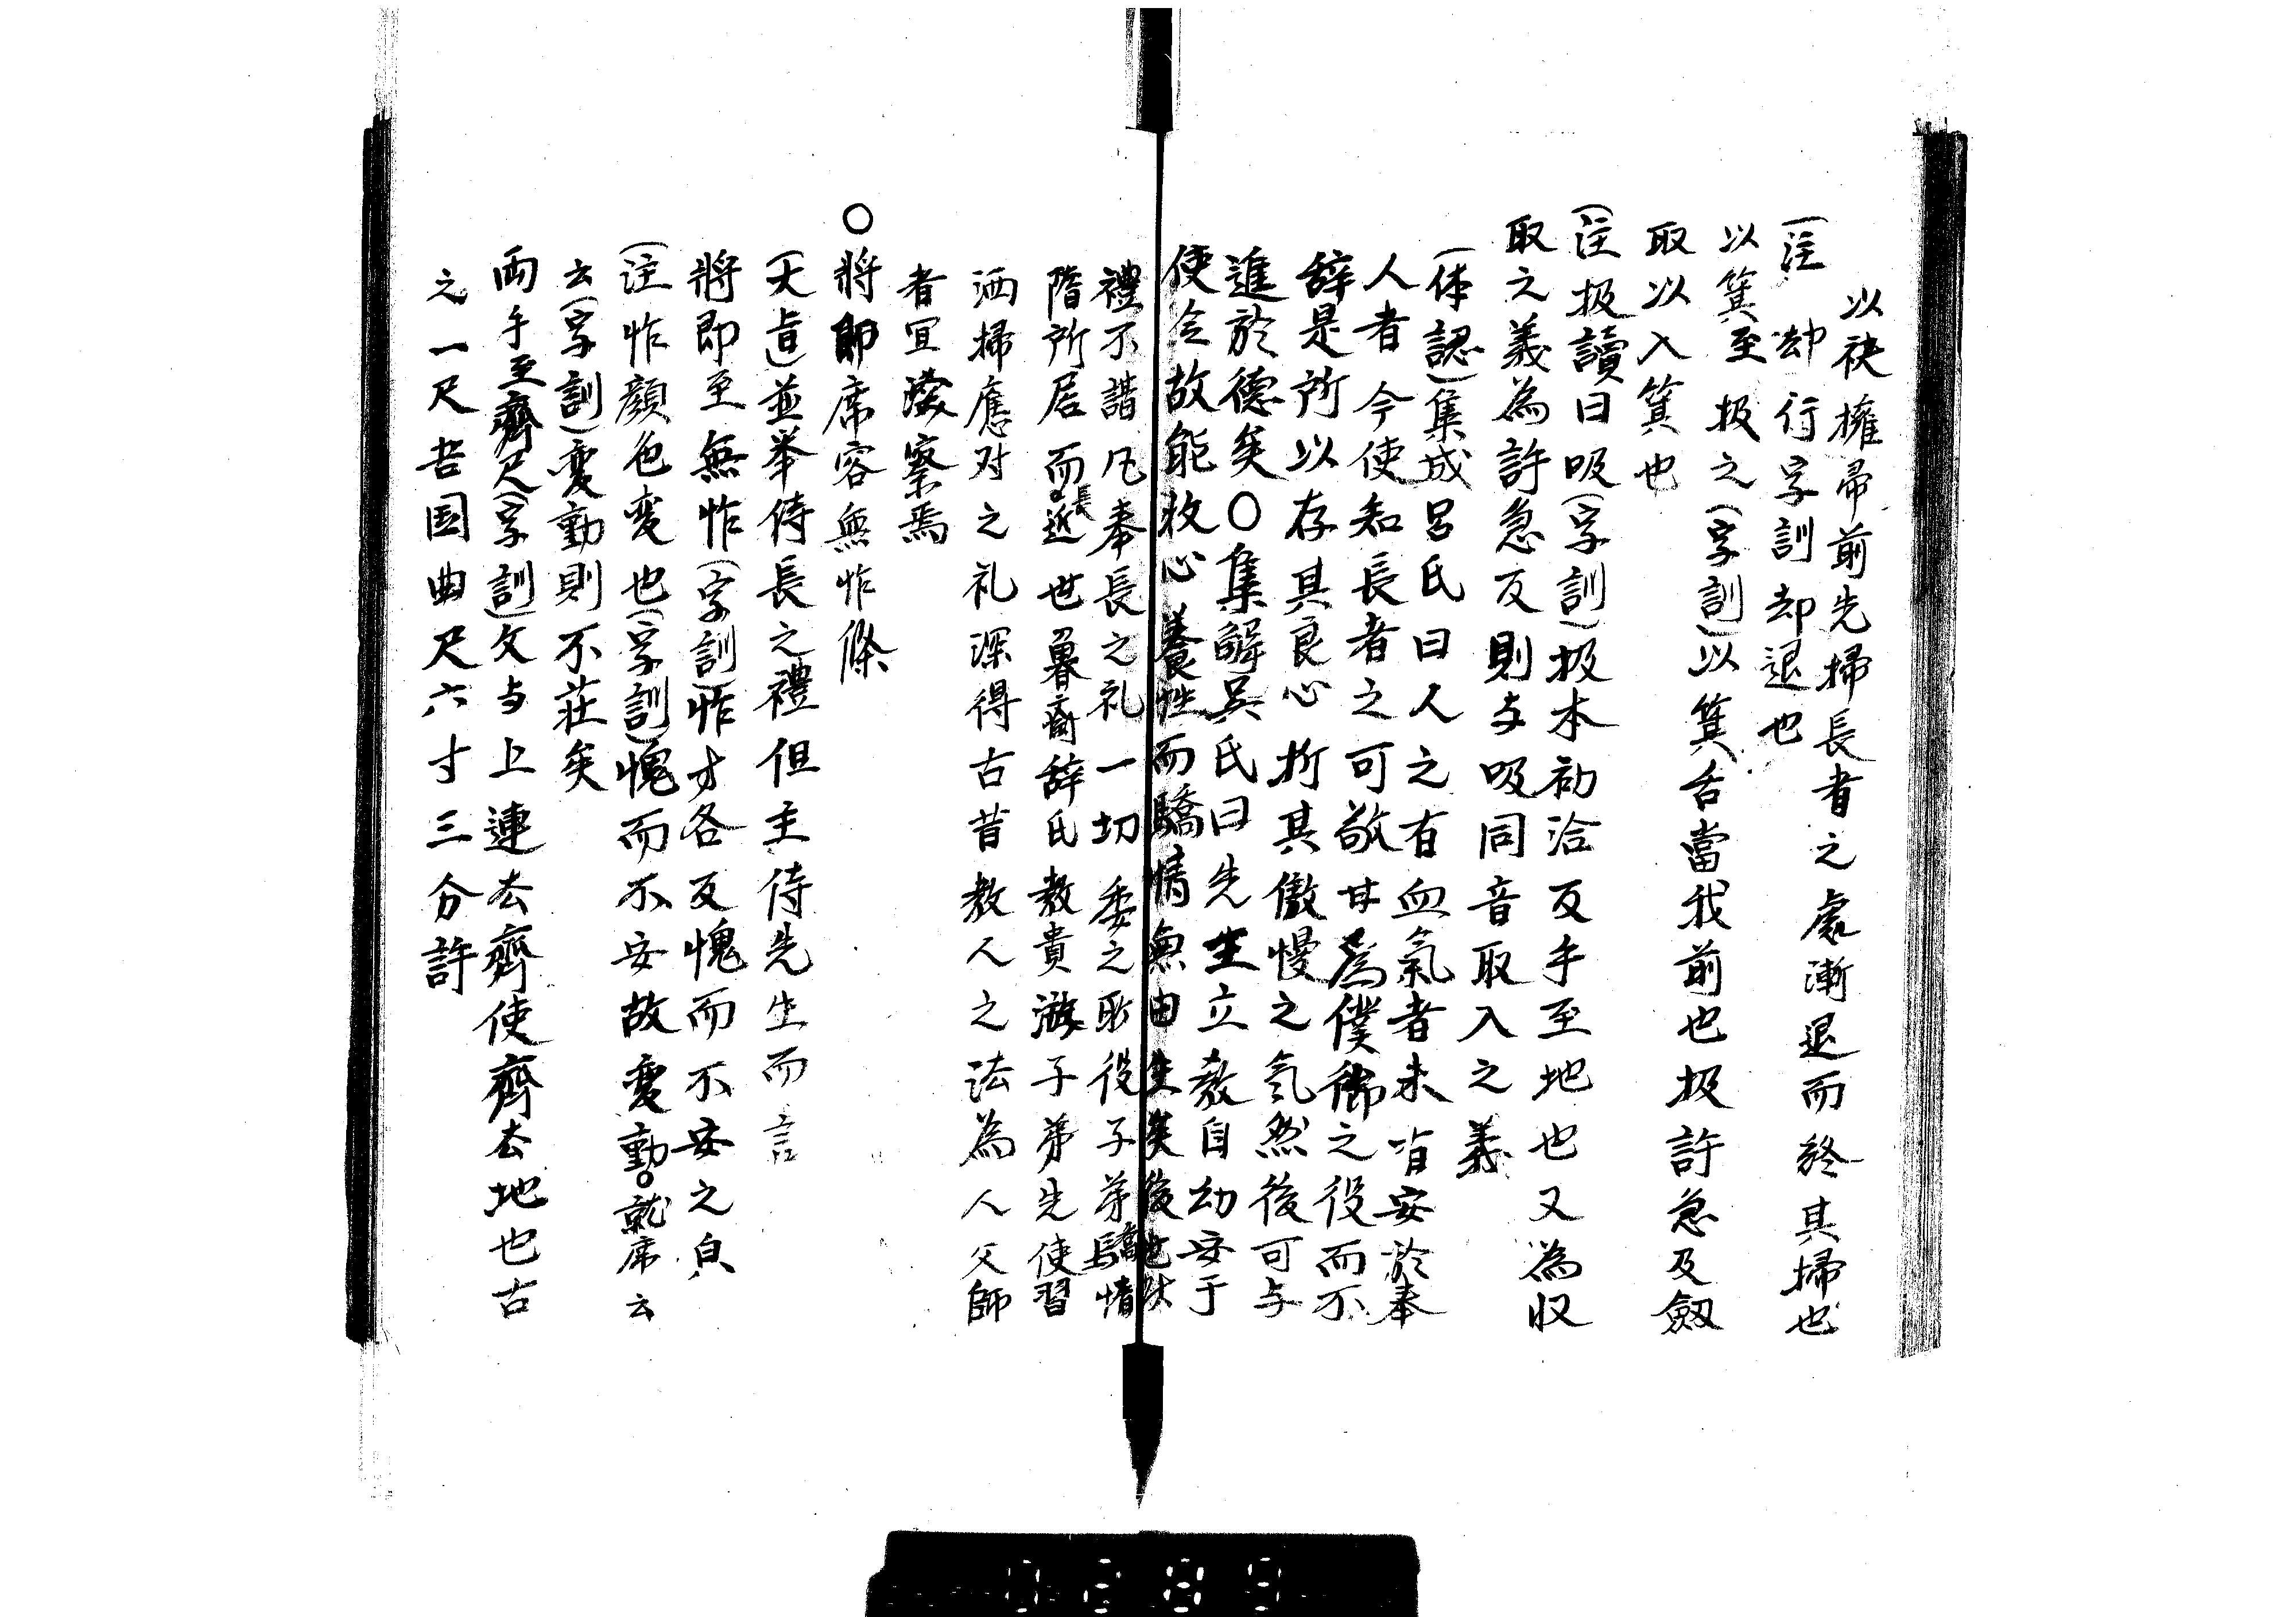 以袂擁帚前先掃長者之處漸退而終其掃也
(注 却行字訓却退也
以箕至扱之(字訓)以箕舌當我前也扱許急及斂
取以入箕也
(注扱讀曰吸(字訓)扱本初洽反手至地也又為収
取之義為許急反則与吸同音取入之義
(体認)集成呂氏曰人之有血氣者未有安於奉
人者今使知長者之可敬甘為僕御之役而不
辞是所以存其良心折其傲慢之気然後可与
進於徳矣○集解吳氏曰先生立教自幼安于
使令故能收心養性而驕情無由生矣後世
禮不諧凡奉長之礼一切委之 役子弟驕惰
階所居而長近世魯齋辞氏教貴游子弟先使習
洒掃應对之礼深得古昔教人之法為人父師
者宜深察焉
○將即席容無怍條
(大旨)並挙侍長之禮但主侍先生而言
將即至無怍(字訓)怍才各反愧而不安之皃
(注怍顔色变也(字訓)愧而不安故変動○就席云
云(字訓)変動則不莊矣
両手至齊尺(字訓)文与上連去齊使齊去地也古
之一尺吾国曲尺六寸三分許